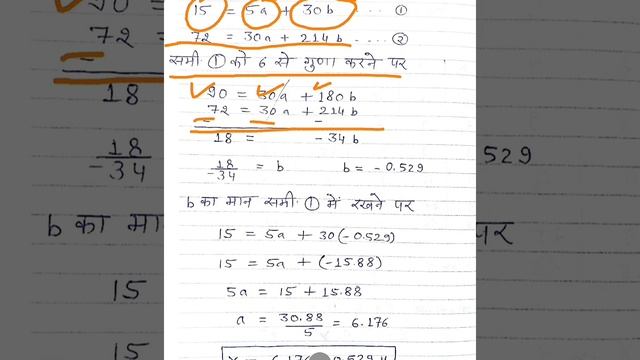 15 = 5a + 30b ---- ①
72 = 30a + 214b ---- ②
समी. ① को 6 से गुणा करने पर
90 = 30a + 180b
72 = 30a + 214b
- - -
18 = - 34b
18/-34 = b b = -0.529
b का मान समी. ① में रखने पर
15 = 5a + 30(-0.529)
15 = 5a + (-15.88)
5a = 15 + 15.88
a = 30.88/5 = 6.176
90
72
18
18/-34
b का मा
15
15
529
पर